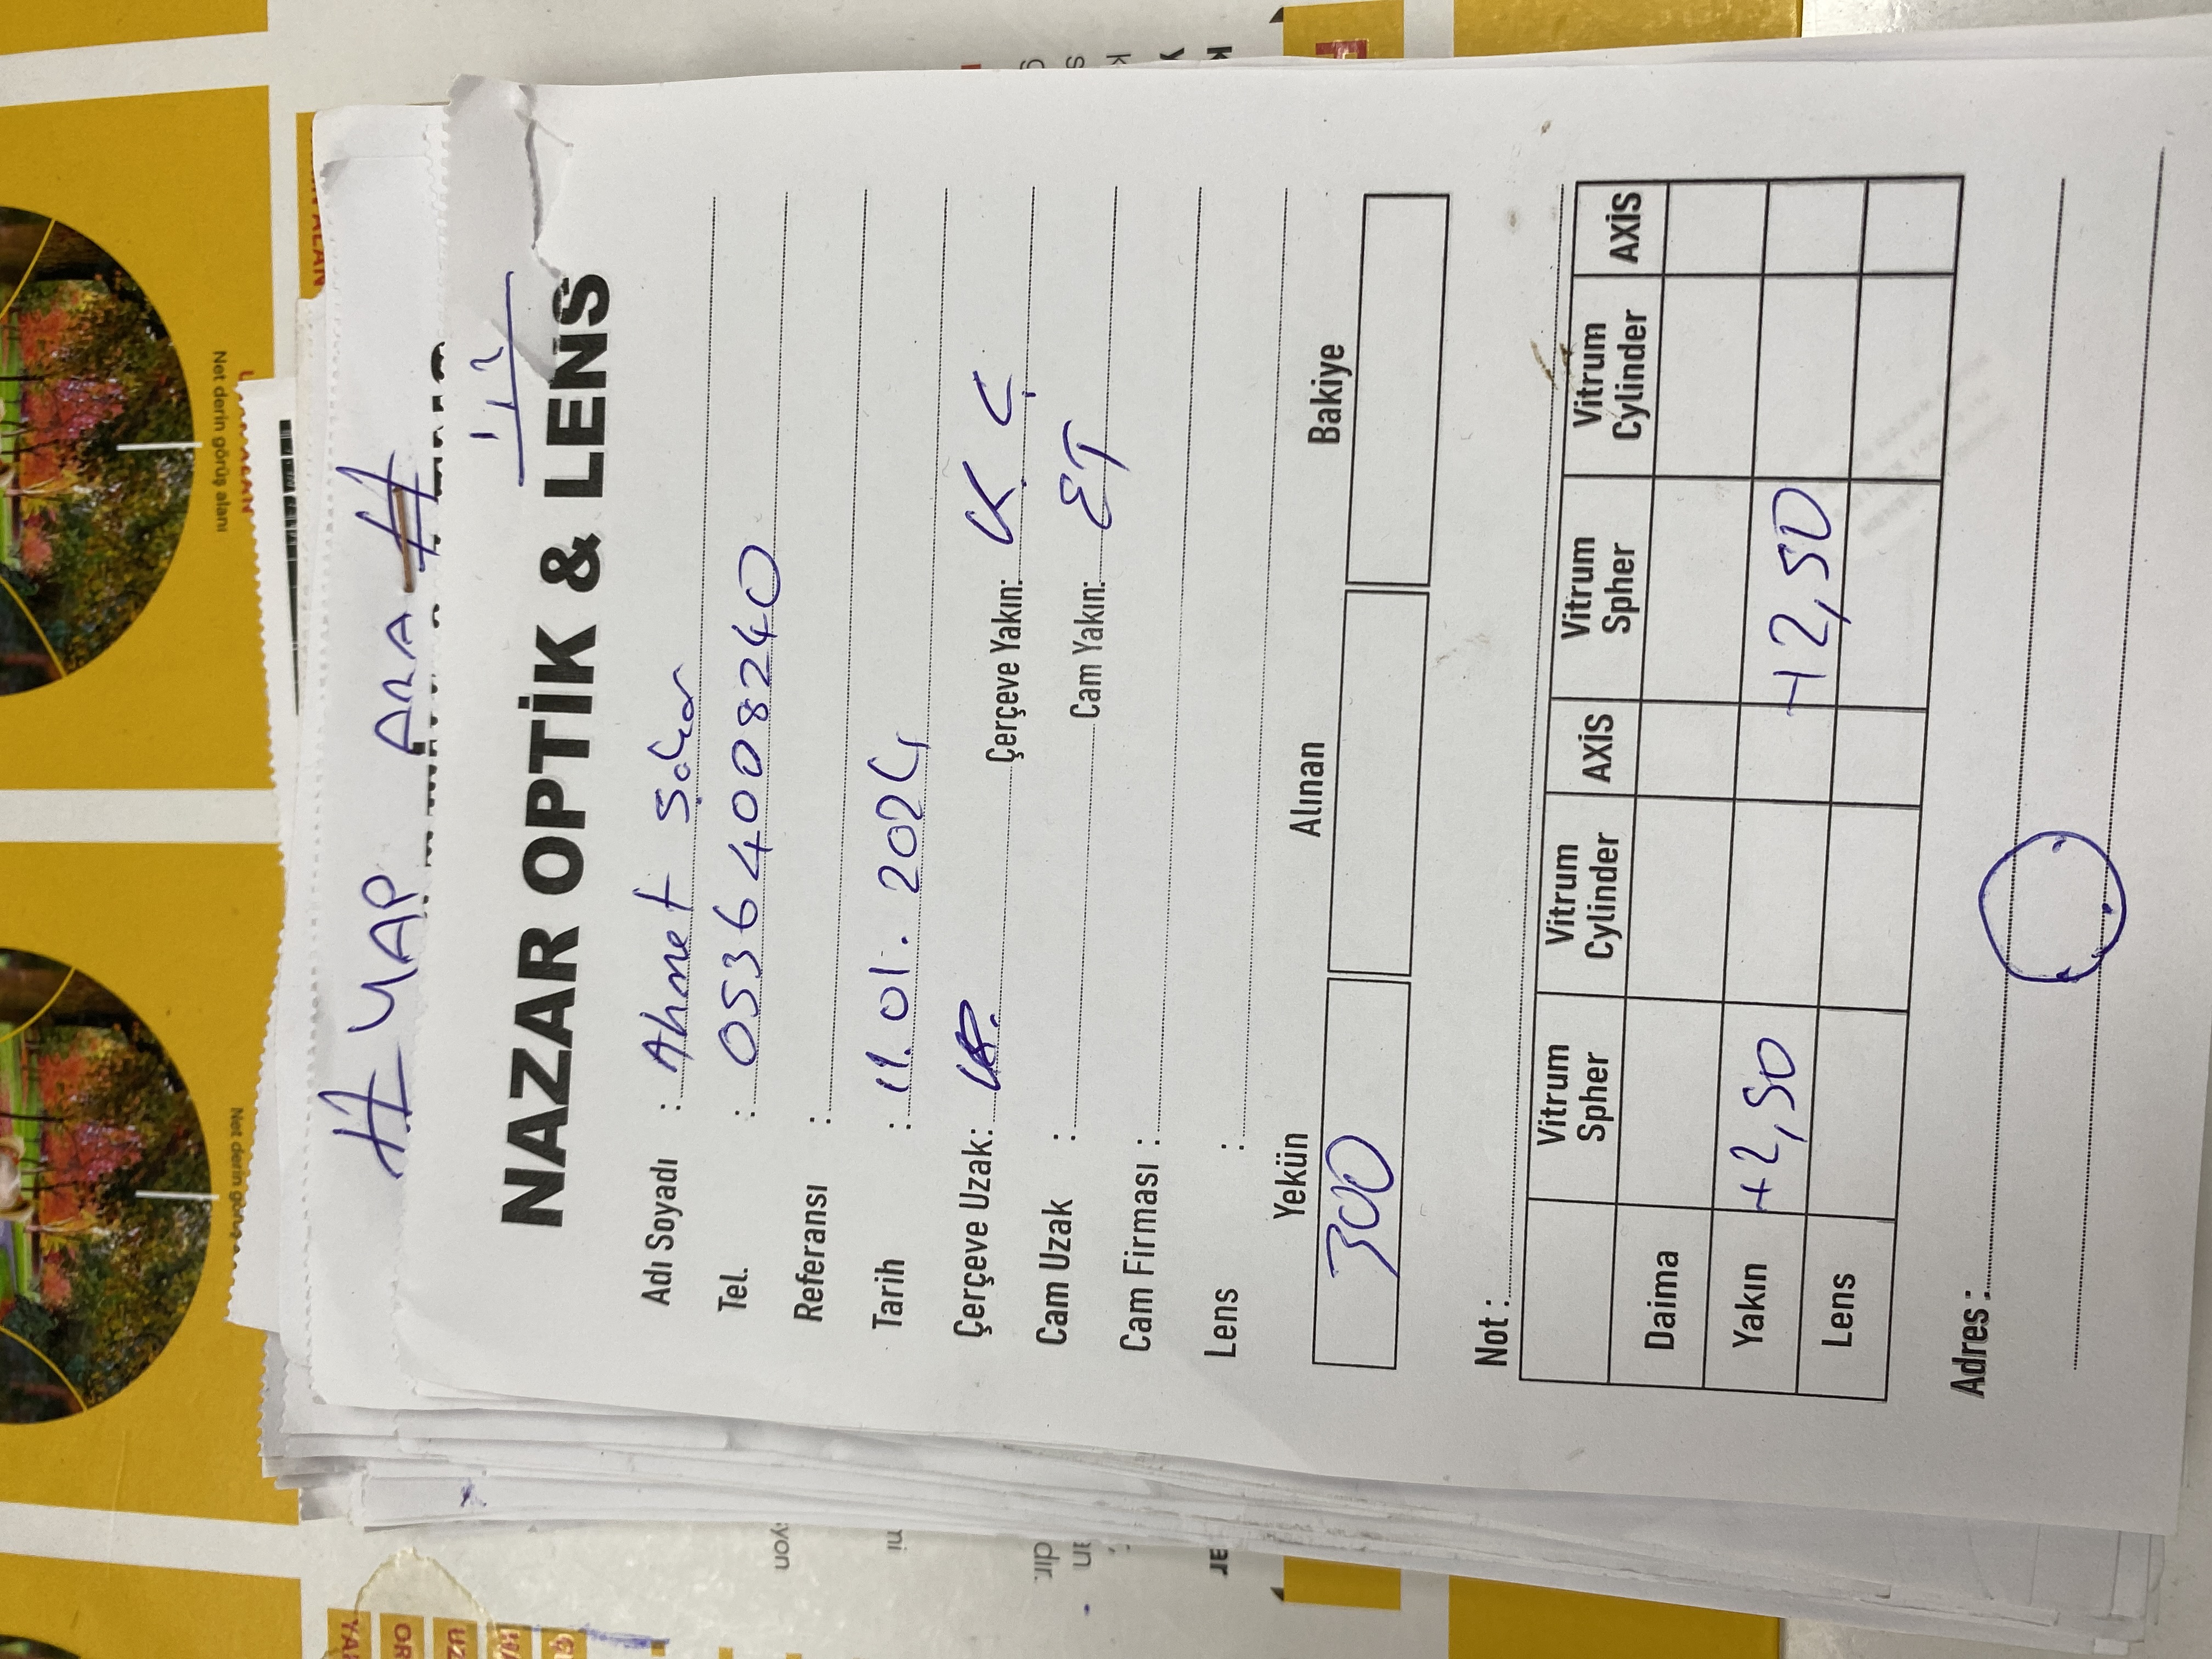 Net derin görüş alanı
UZAK ALAN
# YAP ARA #
1,2
NAZAR OPTİK & LENS
Adı Soyadı : Ahmet
Tel. : 05364008240
Referansı :
Tarih : 11.01.2024
Çerçeve Uzak: Çerçeve Yakın: K. Ç
Cam Uzak : Cam Yakın: ET
Cam Firması :
Lens :
Yekün Alınan Bakiye
300
Not :
Vitrum Spher Vitrum Cylinder AXİS Vitrum Spher Vitrum Cylinder AXİS
Daima
Yakın +2,50 +2,50
Lens
Adres :